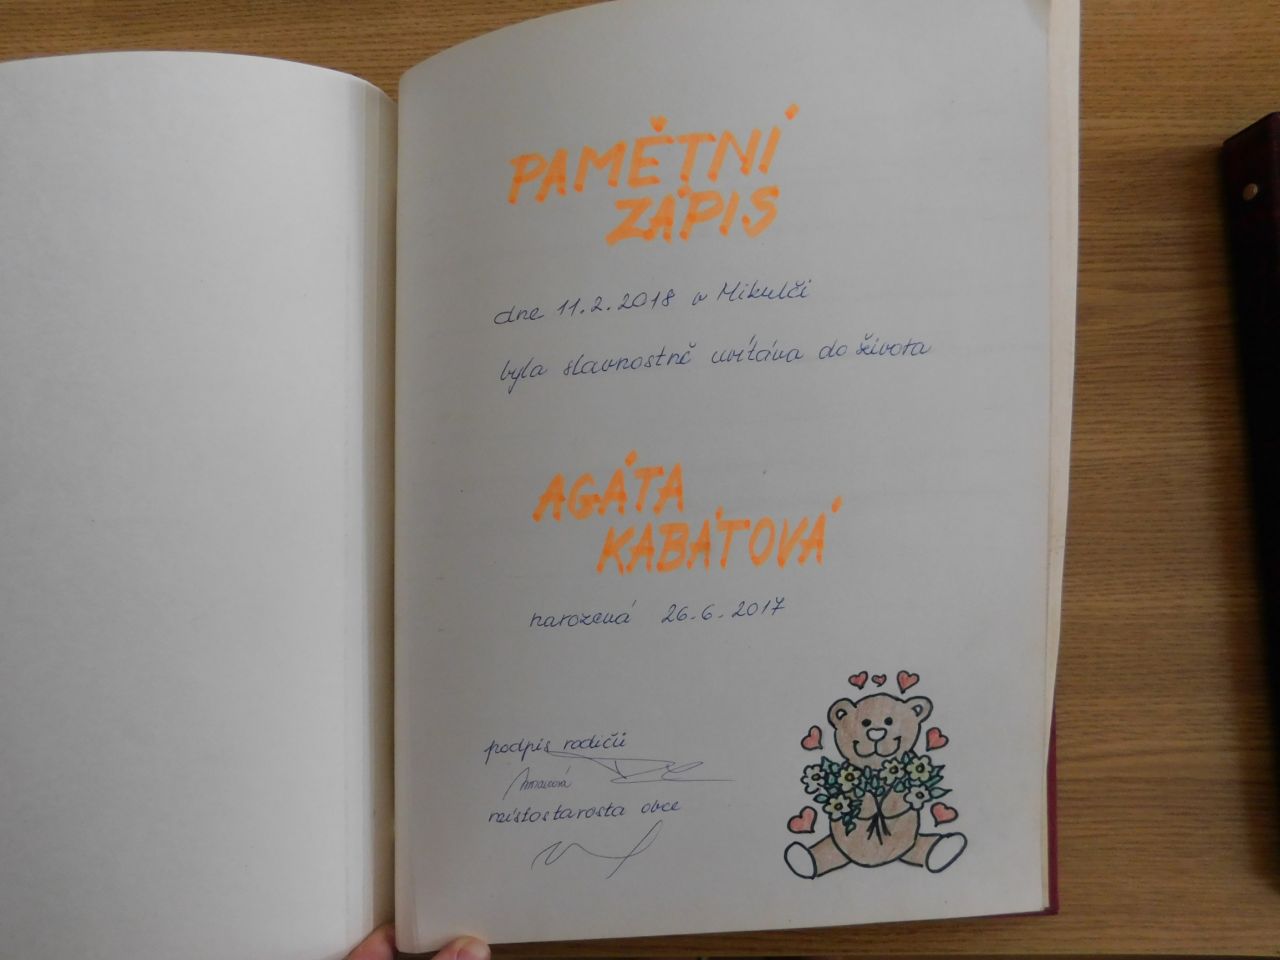 PAMĚTNÍ
ZÁPIS
dne 11.2.2018 v Mikulči
byla slavnostně uvítána do života
AGÁTA
KABÁTOVÁ
narozená 26.6.2017
podpis rodičů
místostarosta obce